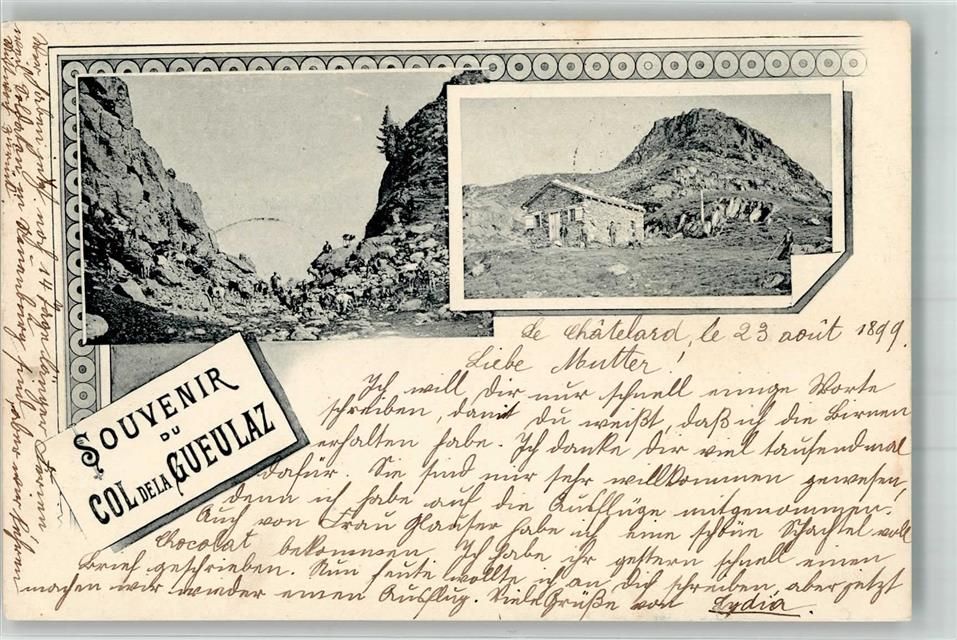 SOUVENIR
DU
COL DE LA GUEULAZ
Le Châtelard, le 23 août 1899.
Liebe Mutter!
Ich will Dir nur schnell einige Worte
schreiben, damit Du weißt, daß ich die Birnen
erhalten habe. Ich danke Dir viel tausendmal
dafür. Sie sind mir sehr willkommen gewesen,
denn ich habe auf die Ausflüge mitgenommen.
Auch von Frau Glauser habe ich eine schöne Schachtel voll
Chocolat bekommen. Ich habe ihr gestern schnell einen
Brief geschrieben. Nun heute wollte ich an Dich schreiben, aber jetzt
machen wir wieder einen Ausflug. Viele Grüße von Lydia.